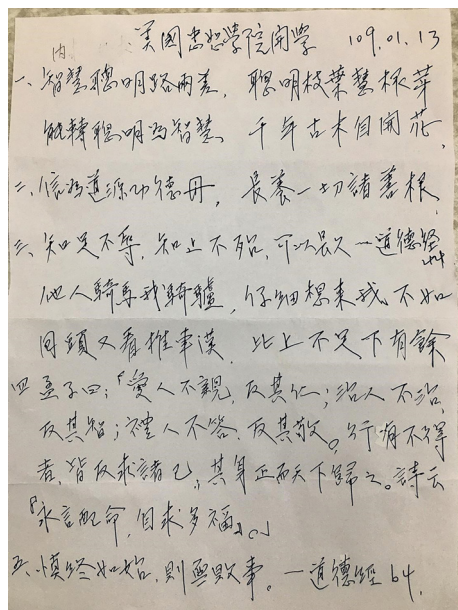 美國忠恕學院開學 109.01.13
內
一、智慧聰明路兩差,聰明枝葉慧根芽
能轉聰明為智慧、千年古木自開花、
二、信為道源功德母,長養一切諸善根,
三、知足不辱,知止不殆,可以長久—道德經44
他人騎馬我騎驢,仔細想來我不如
回頭又看推車漢,比上不足下有餘
四 孟子曰:『愛人不親,反其仁;治人不治,
反其智;禮人不答,反其敬。行有不得
者,皆反求諸己,其身正而天下歸之。詩云
『永言配命,自求多福』。』
五、慎終如始,則無敗事。—道德經64,